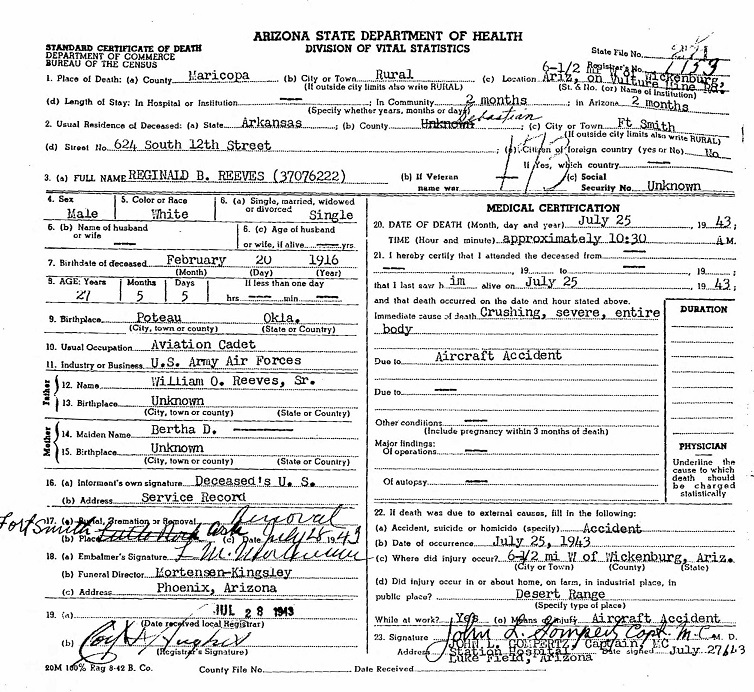 ARIZONA STATE DEPARTMENT OF HEALTH
DIVISION OF VITAL STATISTICS
STANDARD CERTIFICATE OF DEATH
DEPARTMENT OF COMMERCE
BUREAU OF THE CENSUS
State File No.
Registrar's No. 1159
1. Place of Death: (a) County Maricopa (b) City or Town Rural (c) Location 6-1/2 mi W of Wickenburg, Ariz, on Vulture Mine Rd.
(If outside city limits also write RURAL) (St. & No. (or) Name of Institution)
(d) Length of Stay: In Hospital or Institution — In Community 2 months in Arizona 2 months
(Specify whether years, months or days)
2. Usual Residence of Deceased: (a) State Arkansas (b) County Unknown Sebastian (c) City or Town Ft Smith
(If outside city limits also write RURAL)
(d) Street No. 624 South 12th Street (e) Citizen of foreign country (yes or No) No
If Yes, which country —
3. (a) FULL NAME REGINALD B. REEVES (37076222) (b) If Veteran name war (c) Social Security No. Unknown
4. Sex Male
5. Color or Race White
6. (a) Single, married, widowed or divorced Single
6. (b) Name of husband or wife —
6. (c) Age of husband or wife, if alive — yrs.
7. Birthdate of deceased February 20 1916
(Month) (Day) (Year)
8. AGE: Years 27 Months 5 Days 5 If less than one day hrs — min —
9. Birthplace Poteau Okla.
(City, town or county) (State or Country)
10. Usual Occupation Aviation Cadet
11. Industry or Business U.S. Army Air Forces
Father
12. Name William O. Reeves, Sr.
13. Birthplace Unknown
(City, town or county) (State or Country)
Mother
14. Maiden Name Bertha D. —
15. Birthplace Unknown
(City, town or county) (State or Country)
16. (a) Informent's own signature Deceased's U. S.
(b) Address Service Record
17. (a) Burial, Cremation or Removal Removal
(b) Place Fort Smith Little Rock Ark (c) Date July 28 1943
18. (a) Embalmer's Signature L. M.
(b) Funeral Director Mortensen-Kingsley
(c) Address Phoenix, Arizona
19. (a) JUL 28 1943
(Date received local Registrar)
(b)
(Registrar's Signature)
20M 100% Rag 8-42 B. Co.
MEDICAL CERTIFICATION
20. DATE OF DEATH (Month, day and year) July 25 1943;
TIME (Hour and minute) approximately 10:30 A.M.
21. I hereby certify that I attended the deceased from —
—, 19 — to —, 19 —;
that I last saw him alive on July 25 1943;
and that death occurred on the date and hour stated above.
Immediate cause of death Crushing, severe, entire
body
Due to Aircraft Accident
Due to —
Other conditions —
(Include pregnancy within 3 months of death)
Major findings:
Of operations —
Of autopsy —
DURATION
PHYSICIAN
Underline the cause to which death should be charged statistically
22. If death was due to external causes, fill in the following:
(a) Accident, suicide or homicide (specify) Accident
(b) Date of occurrence July 25, 1943
(c) Where did injury occur? 6-1/2 mi W of Wickenburg, Ariz.
(City or Town) (County) (State)
(d) Did injury occur in or about home, on farm, in industrial place, in
public place? Desert Range
(Specify type of place)
While at work? Yes (e) Means of injury Aircraft Accident
23. Signature John L. Gompertz Capt. M.C. M. D.
JOHN L. GOMPERTZ, Captain, MC
Address Station Hospital Date signed July 27/43
Luke Field, Arizona
County File No. Date Received